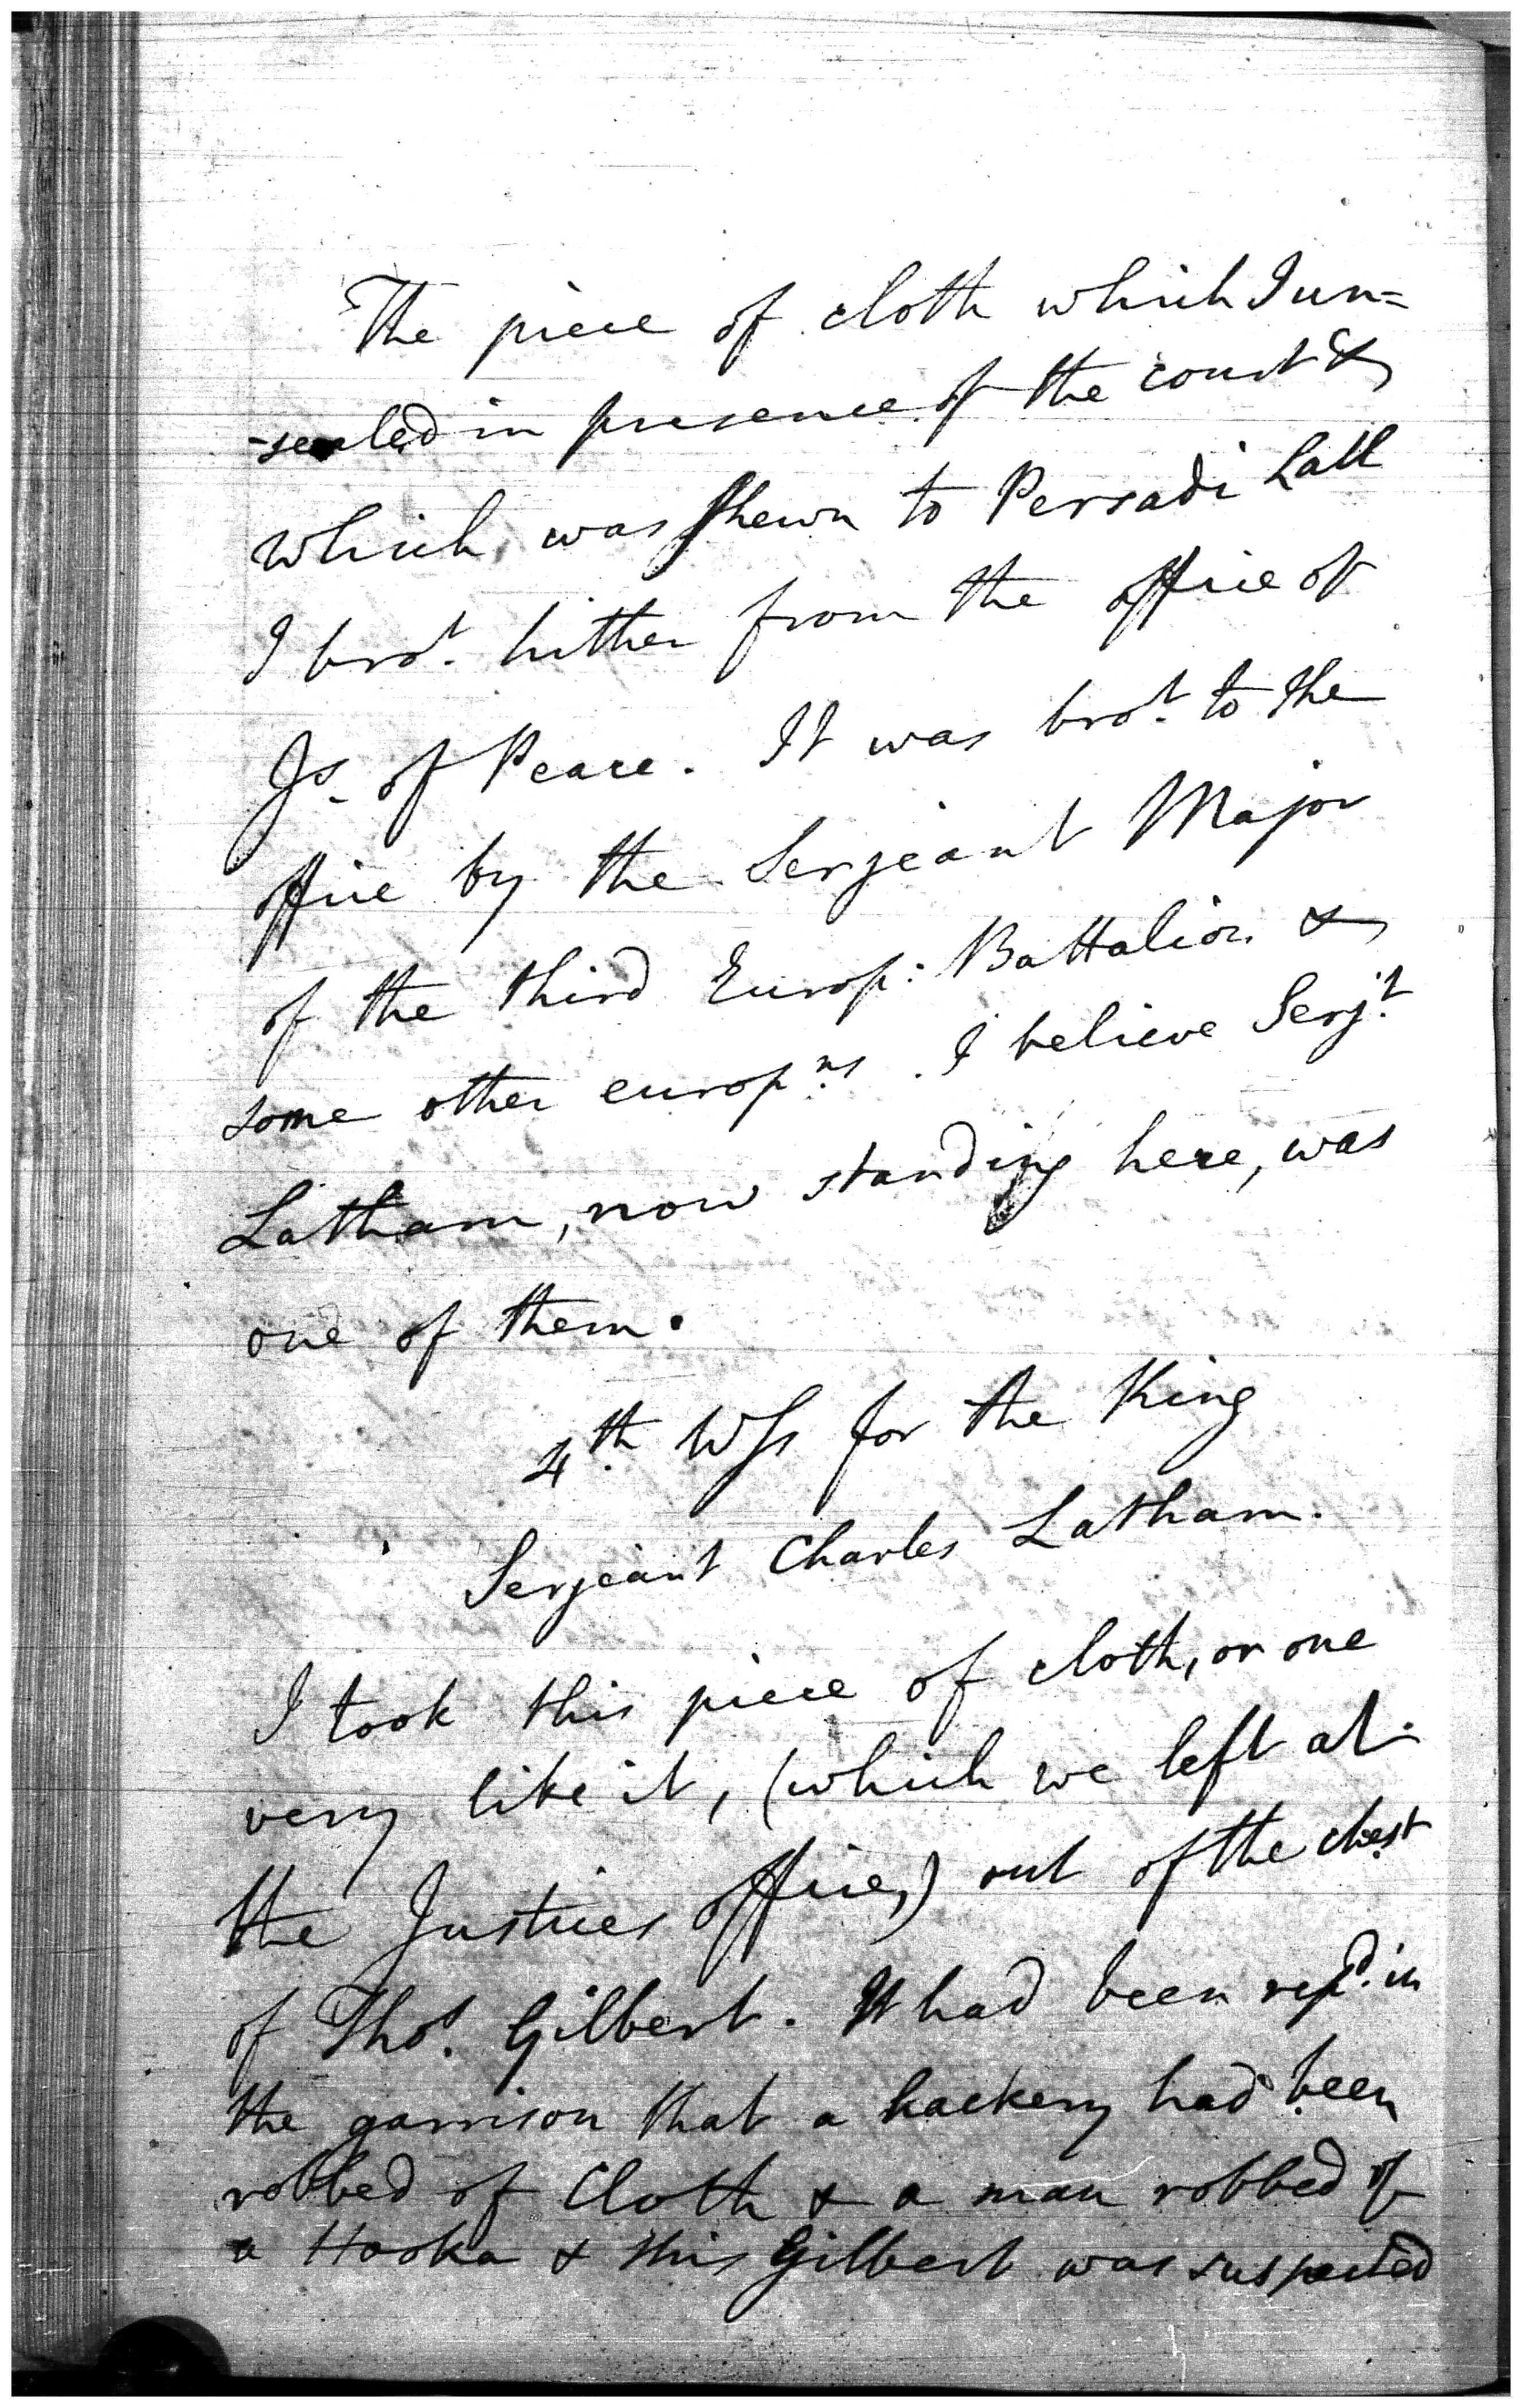 The piece of cloth which I un=
-sealed in presence of the court &
which was shewn to Persadi Lall
I bro.t hither from the office of
Js. of Peace. It was bro.t to the
office by the Serjeant Major
of the third Europ: Battalion &
some other europ.ns. I believe Serj.t
Latham, now standing here, was
one of them.
4.th Wss for the King
Serjeant Charles Latham.
I took this piece of cloth, or one
very like it, (which we left at
the Justices office,) out of the chest
of Tho.s Gilbert. It had been rep.d in
the garrison that a hackery had been
robbed of Cloth & a man robbed of
a Hooka & this Gilbert was suspected